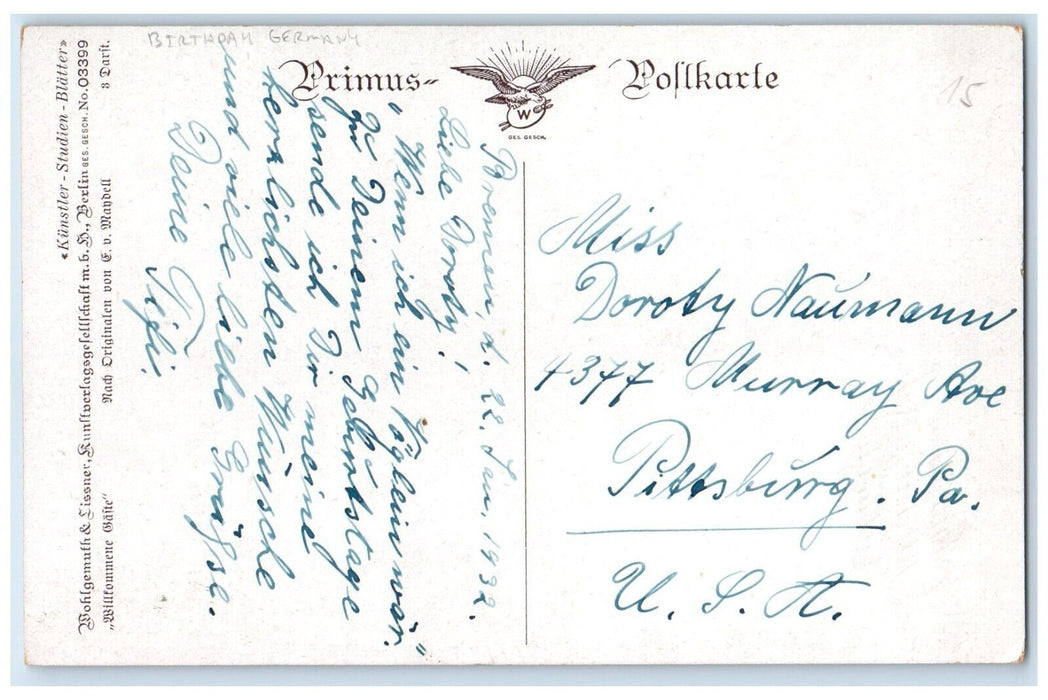 BIRTHDAY GERMANY
Primus- Postkarte
W
GES. GESCH.
15
Bremen, d. 22. Jan. 1932.
Liebe Doroty!
"Wenn ich ein Vöglein wär."
Zu Deinem Geburtstage
sende ich Dir meine
herzlichsten Wünsche
und viele liebe Grüsse.
Deine
Miss
Doroty Naumann
4377 Murray Ave
Pittsburg. Pa.
U. S. A.
«Künstler-Studien-Blätter»
Wohlgemuth & Lissner, Kunstverlagsgesellschaft m. b. H., Berlin GES. GESCH. No. 03399
„Willkommene Gäste“ Nach Originalen von E. v. Maydell 3 Darst.